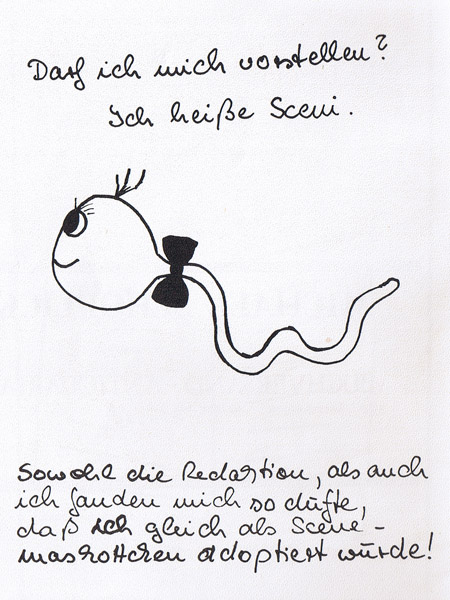 Darf ich mich vorstellen?
Ich heiße Sceni.
Sowohl die Redaktion, als auch
ich fanden mich so dufte,
daß ich gleich als Scene-
maskottchen adoptiert wurde!